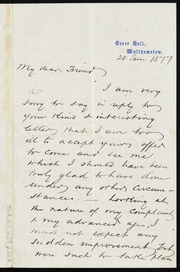 Gorse Hall,
Walthamstow.
20 Jan 1877
My dear Friend
I am very
sorry to say in reply to
your kind & interesting
letter that I am too
ill to accept your offer
to come and see me
which I should have been
truly glad to have done
under any other circum-
stances — looking at
the nature of my complaint
& my advanced age I
must not expect any
sudden improvement but
were such to take place